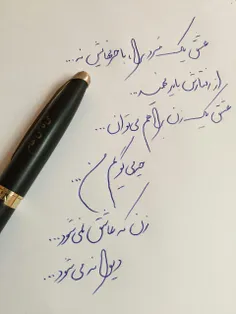 عشق یک مرد را، با حرفهایش نه...
از رفتارش باید فهمید...
عشق یک زن را هم می‌توان...
چه می‌گویم من...
زن که عاشق نمی‌شود...
دیوانه می‌شود...